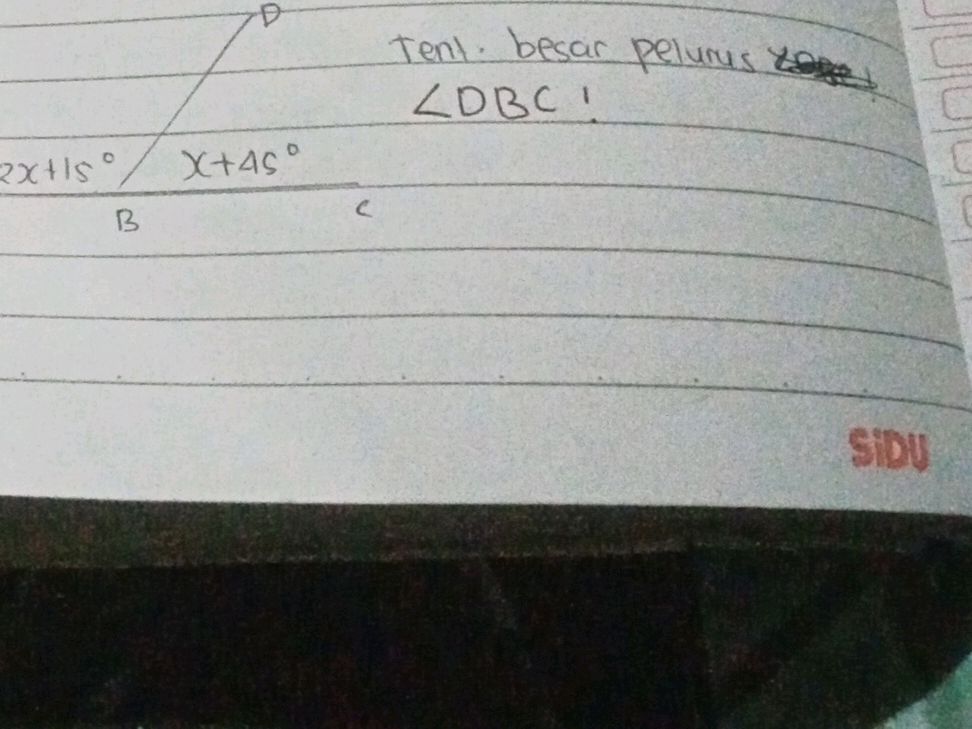 D
Tent. besar pelurus
∠DBC!
2x+15° x+45°
B C
SiDU